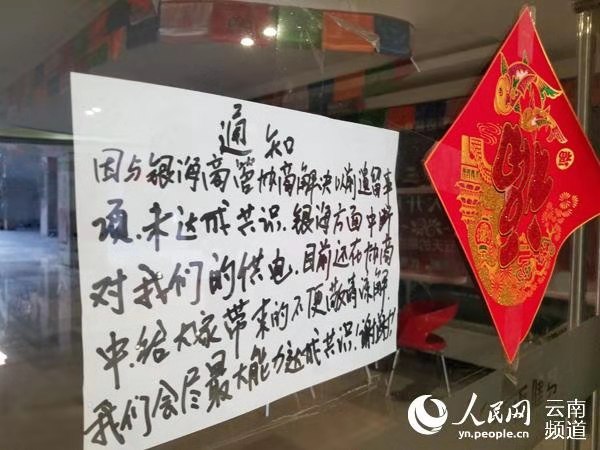 通知
因与银海高管协商解决以前遗留事
项.未达成共识.银海方面中断
对我们的供电.目前还在协商
中.给大家带来的不便敬请谅解.
我们会尽最大能力达成共识.谢谢!
福
人民网
yn.people.cn
云南
频道